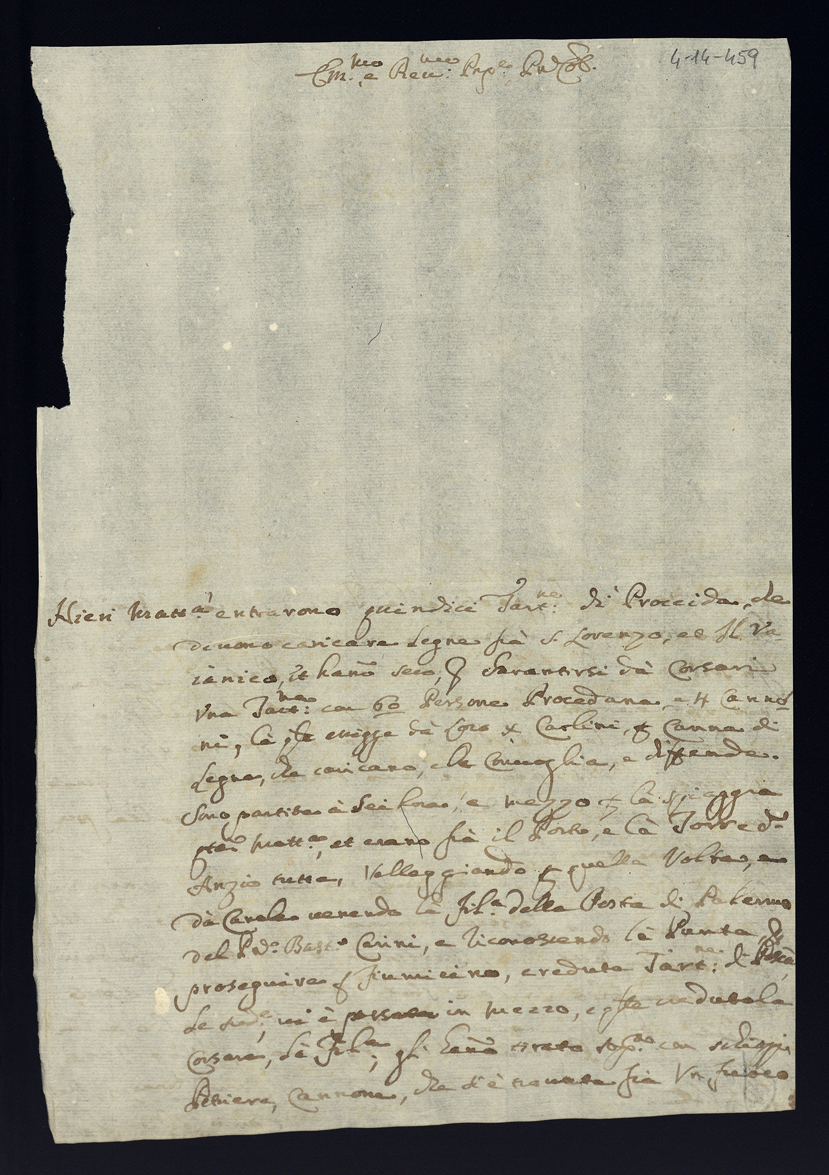 4-14-459
Em.mo e Rev.mo
Hieri matt.a entrarono quindici Tart.ne di Proccida, che
devono caricare legne frà S. Lorenzo, et Il Va-
iànico, et hanno seco, p garantirsi dà Corsari
Una Tart.na con 60 Persone Procedana, e 4 Canno
ni, là esigge dà loro x Carlini, p Canna di
Legne, che caricano, che Convoglia, e diffende.
Sono partite à sei hore, e mezzo p là spiaggia
matt.a, et erano frà il Porto, e là Torre d'
Anzio tutte, Volteggiando p quella Volta, e
dà Canale venendo là Fil.a della Posta di Palermo
del Pad.o Bast.o Carini, e riconoscendo là Punta
proseguire p Fiumicino, credute Tart.ne di
Le vi è passata in mezzo, e vedutala
Corsara, là Fil.a, gl'hanno tirato con schioppi
Petriere, Cannone, che si è trovata frà Un fuoco